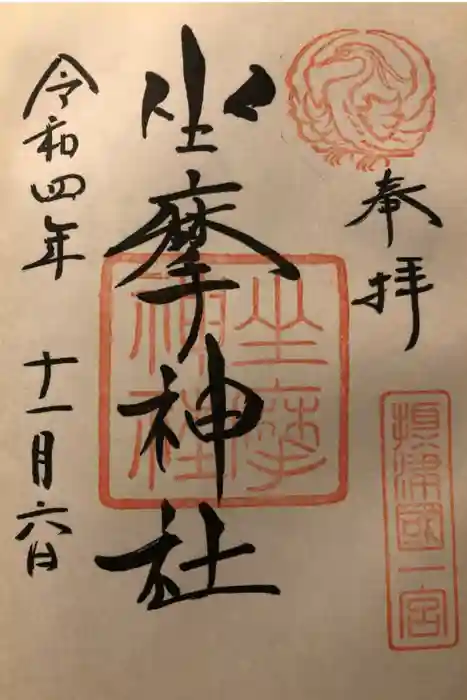 奉拝
摂津國一宮
坐摩神社
坐摩
神社
令和四年 十一月六日